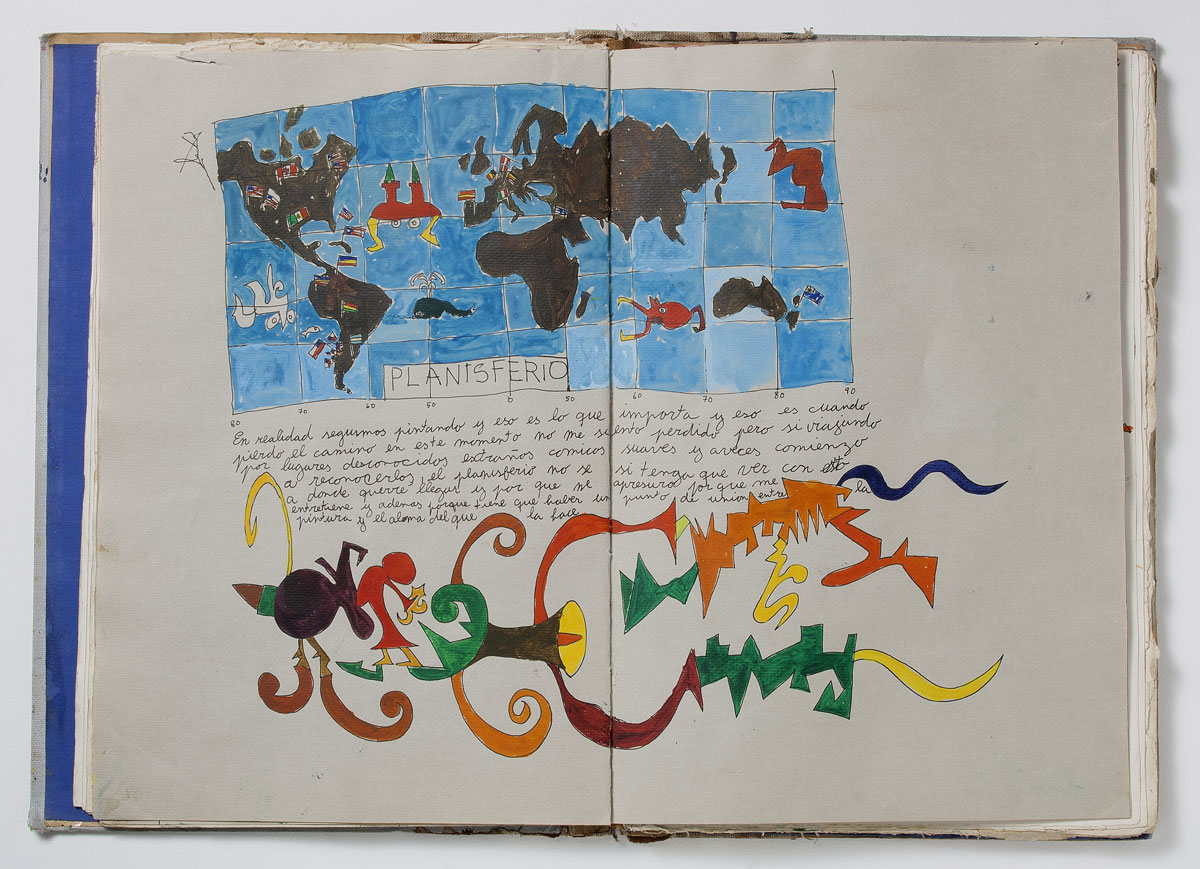 PLANISFERIO
80 70 60 50 0 50 60 70 80 90
En realidad seguimos pintando y eso es lo que importa y eso es cuando
pierdo el camino en este momento no me siento perdido pero si viajando
por lugares desconocidos extraños comicos suaves y aveces comienzo
a reconocerlos, el planisferio no se si tenga que ver con esto
a donde querre llegar y por que me apresuro porque me la
entretiene y ademas porque tiene que haber un punto de union entre
pintura y el aloma del que la hace